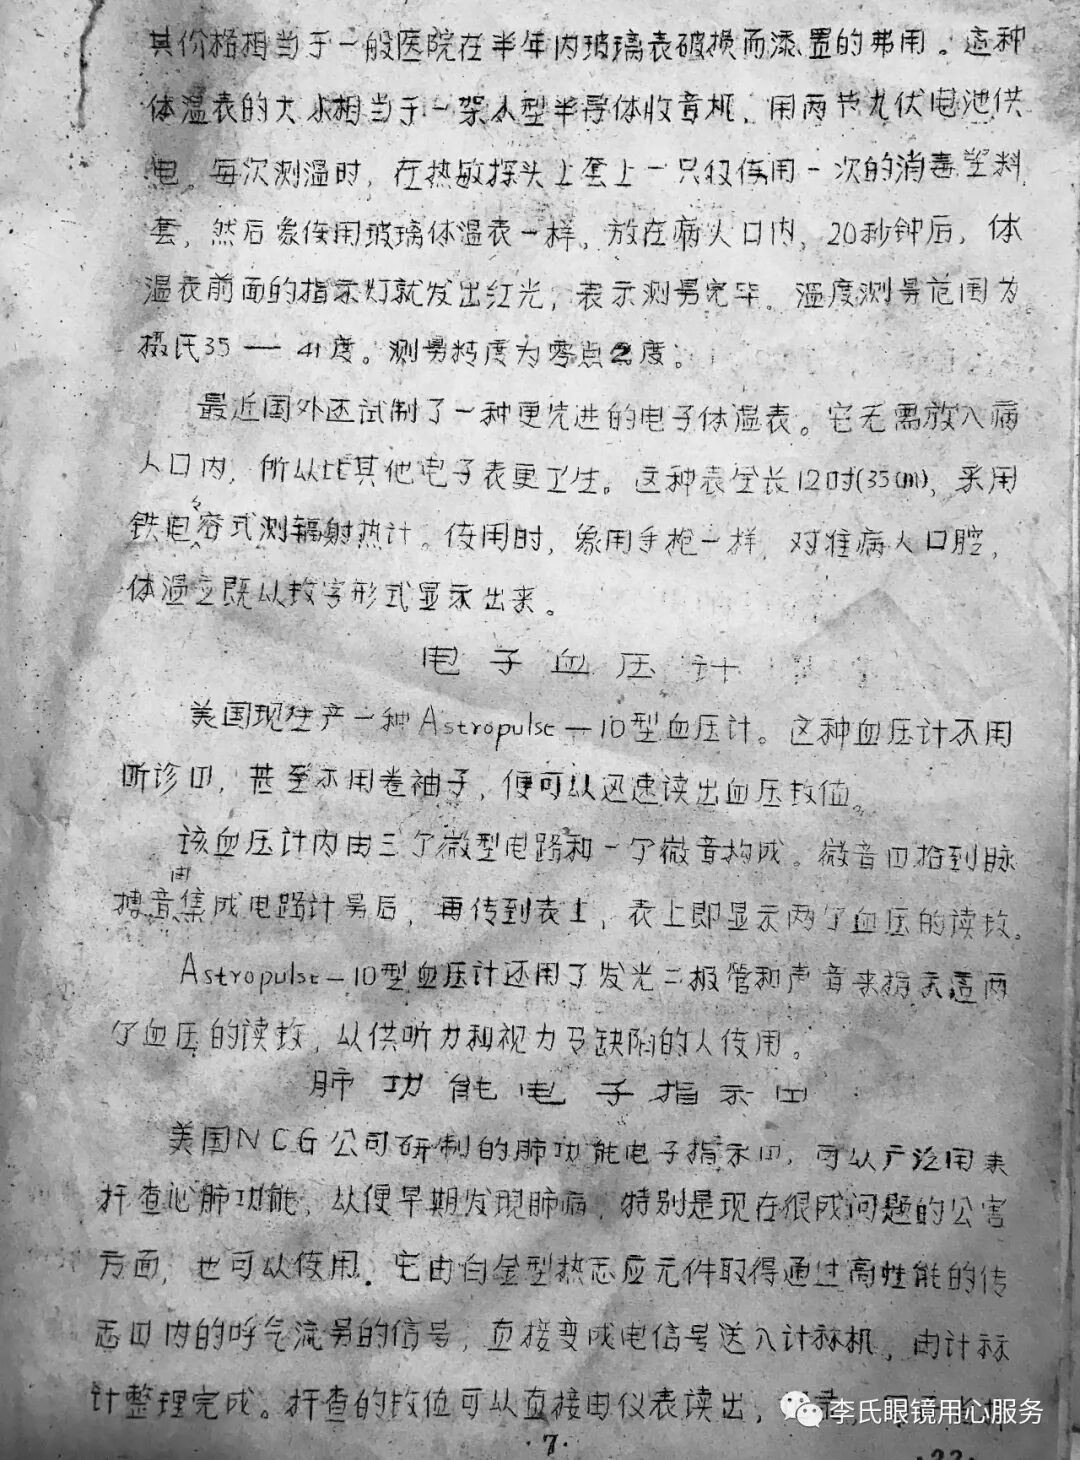 其价格相当于一般医院在半年内玻璃表破损而添置的费用。这种
体温表的大小相当于一架小型半导体收音机，用两节九伏电池供
电。每次测温时，在热敏探头上套上一只仅使用一次的消毒塑料
套，然后象使用玻璃体温表一样，放在病人口内，20秒钟后，体
温表前面的指示灯就发出红光，表示测另完毕。温度测另范围为
摄氏35—41度。测另精度为零点2度。
最近国外还试制了一种更先进的电子体温表。它无需放入病
人口内，所以比其他电子表更卫生。这种表全长12吋(35cm)，采用
铁电容式测辐射热计。使用时，象用手枪一样，对准病人口腔，
体温立既以数字形式显示出来。
电子血压计
美国现生产一种Astropulse—10型血压计。这种血压计不用
听诊口，甚至不用卷袖子，便可以迅速读出血压数值。
该血压计内由三个微型电路和一个微音构成。微音口拾到脉
搏音由集成电路计另后，再传到表上，表上即显示两个血压的读数。
Astropulse—10型血压计还用了发光二极管和声音来指示这两
个血压的读数，以供听力和视力有缺陷的人使用。
肺功能电子指示口
美国NCG公司研制的肺功能电子指示口，可以广泛用来
扦查心肺功能，以便早期发现肺病，特别是现在很成问题的公害
方面，也可以使用。它由白金型热志应元件取得通过高性能的传
志口内的呼气流另的信号，直接变成电信号送入计祘机，由计祘
计整理完成。扦查的数值可以直接由仪表读出，
·7·
·22·
李氏眼镜用心服务